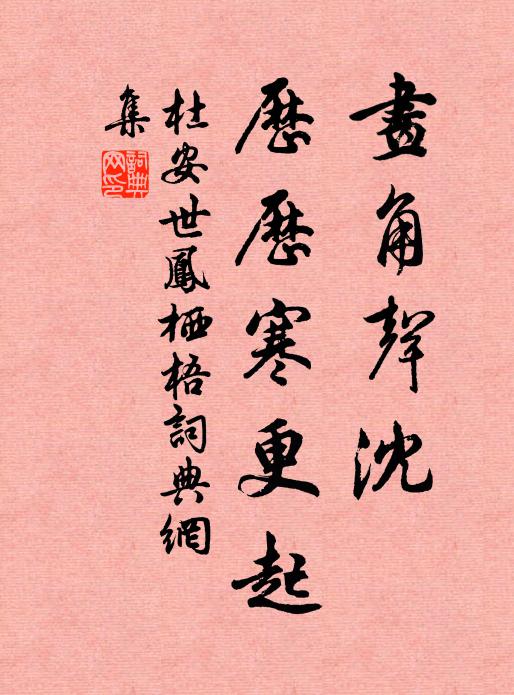 畫角聲沈
歷歷寒更起
杜安世鳳栖梧詞典網
集
詞典网印